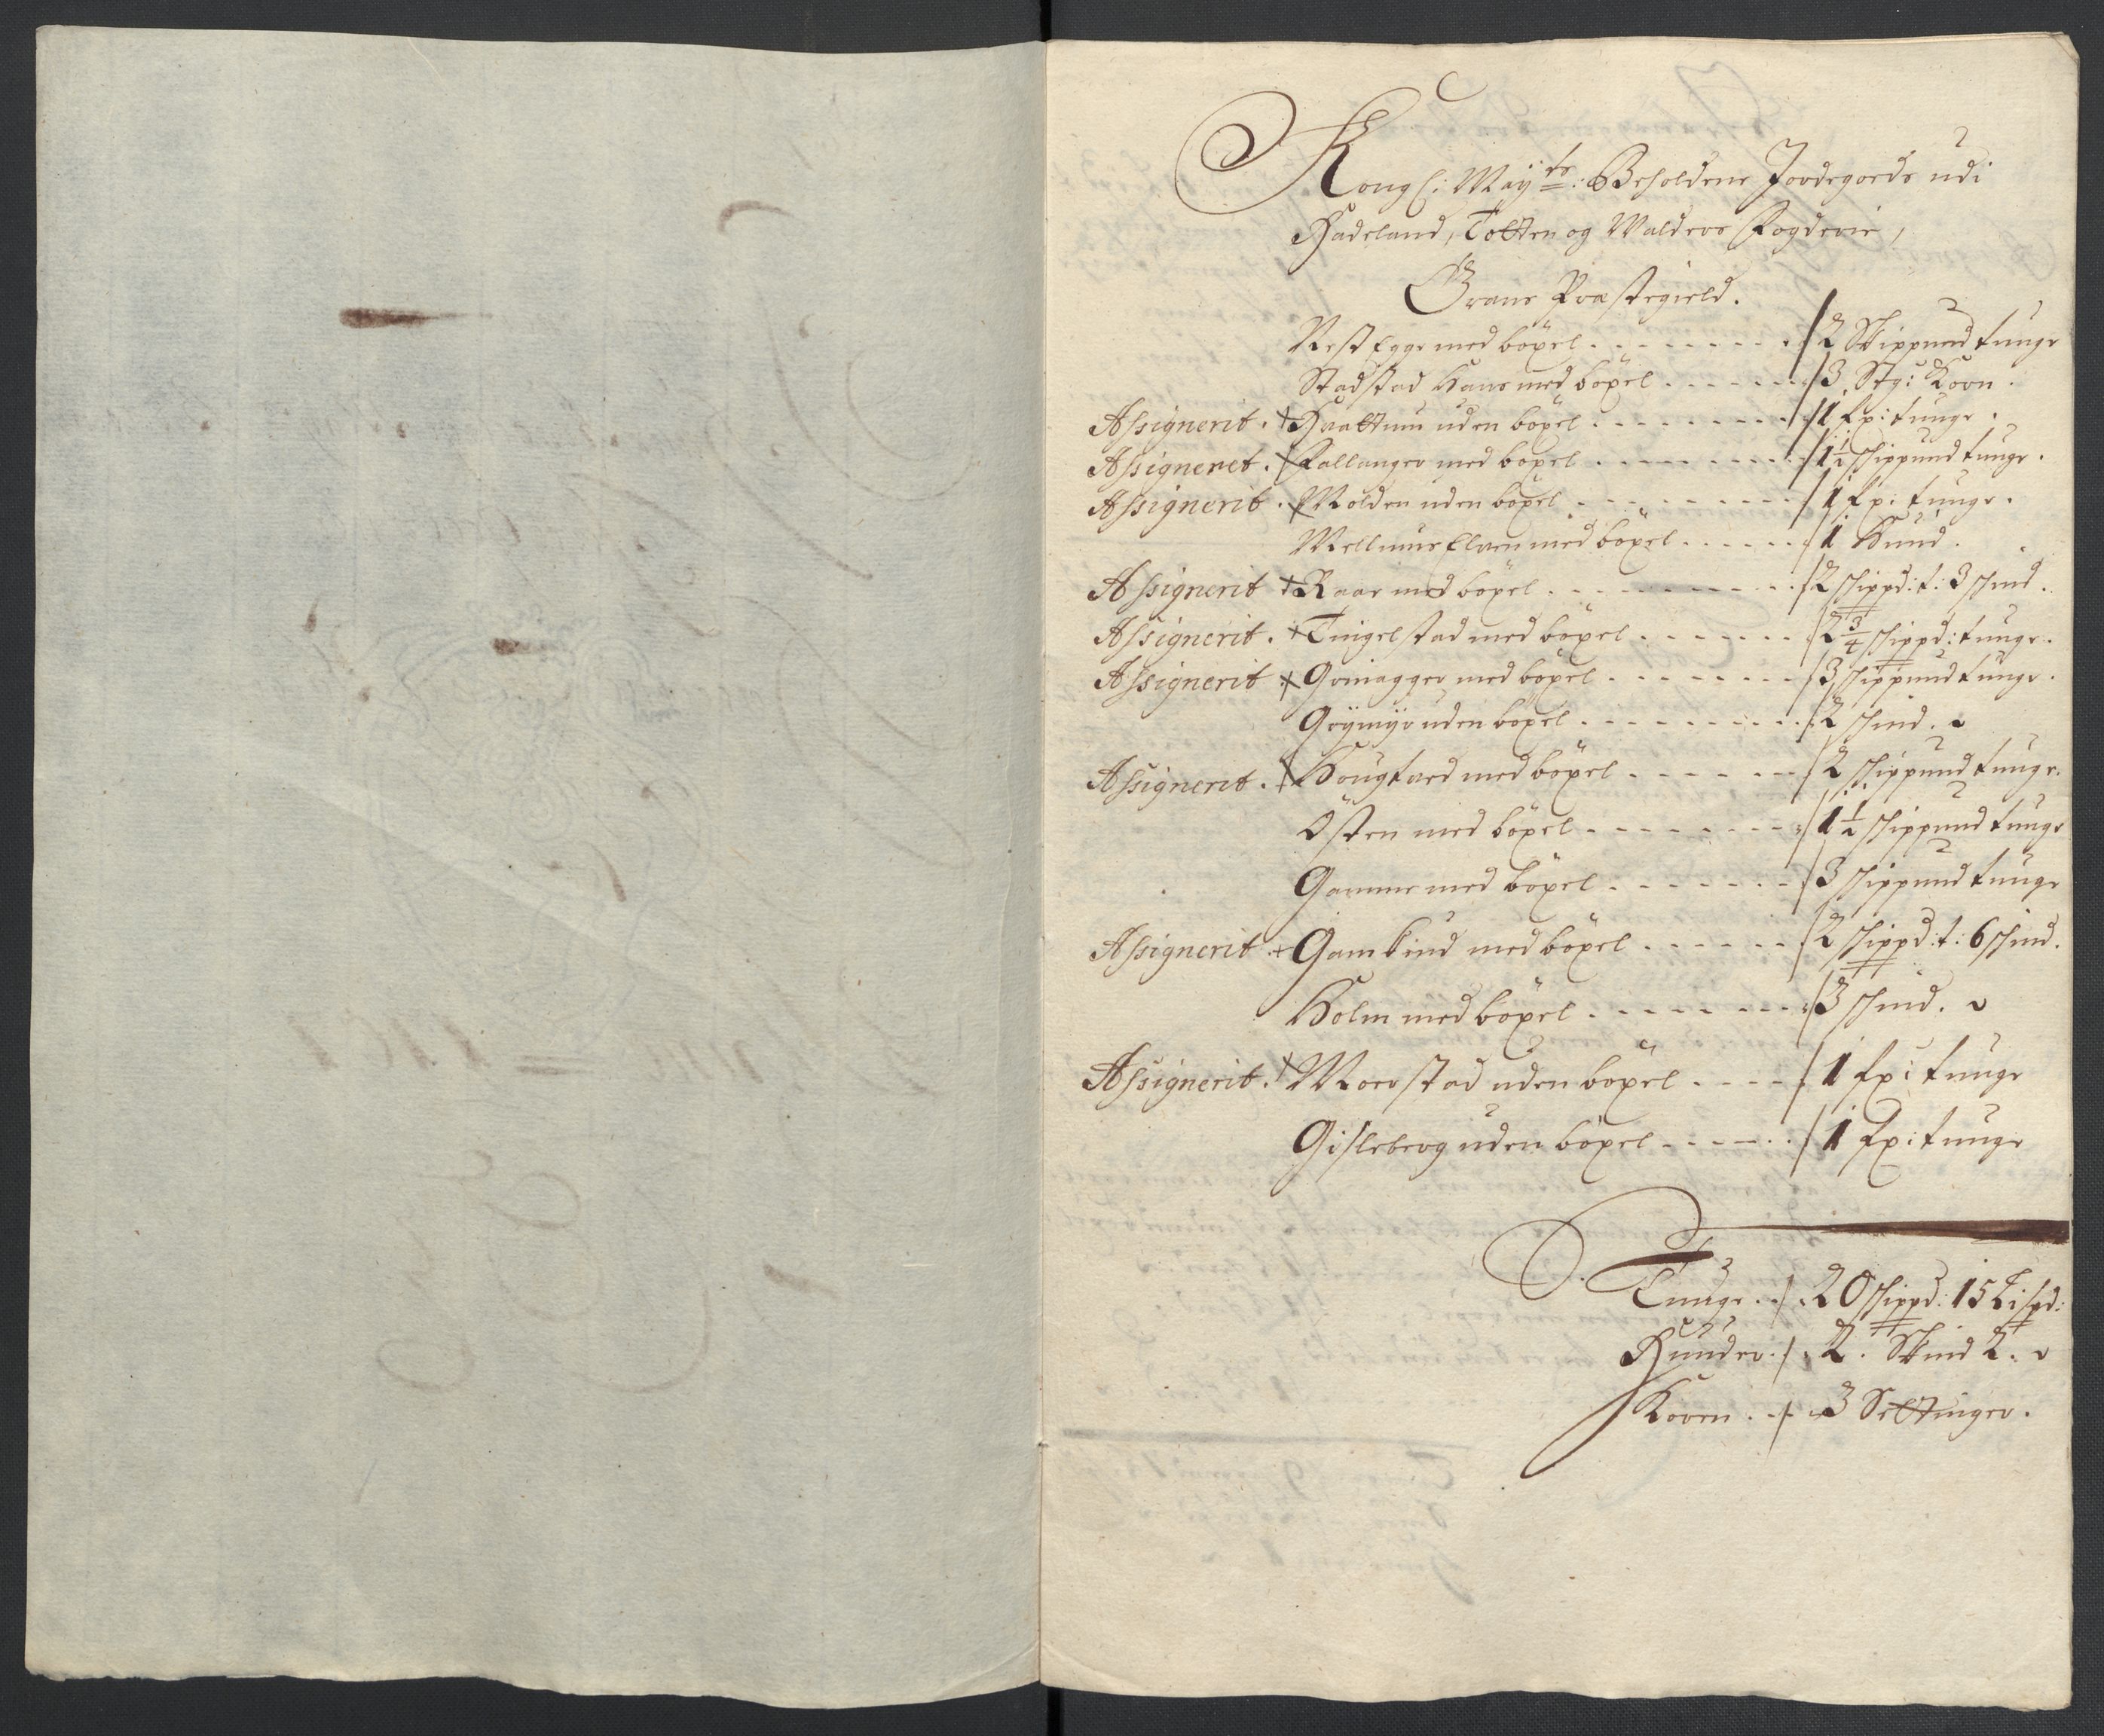 Kongl: Maÿts: Beholdene Jordegods udi
Hadeland, Totten og Walders Fogderie,
Grans Præstegield.
Vest Egge med böxel 2 Skippund tunge
Stadstad Hans med böxel 3 Stg: Korn.
Assignerit. Hvattum uden böxel 1 fx: tunge.
Assigneret. Fallanger med böxel 1½ schippund tunge.
Assignerit. Molden uden böxel 1 fx: tunge.
Mellums Elven med böxel 1 Hund.
Assignerit Raar med böxel 2 schippd: t: 3 schind.
Assignerit. Tingelstad med böxel 2¾ schippd: tunge.
Assignerit Grinagger med böxel 3 schippund tunge.
Grymyr uden böxel 2 schind.
Assignerit. Hougtved med böxel 2 schippund tunge.
Östen med böxel 1½ schippund tunge
Gamme med böxel 3 schippund tunge
Assignerit Gamkind med böxel 2 schippd: t: 6 schind.
Holm med böxel 3 schind.
Assignerit. Morstad uden böxel 1 fx: tunge
Gisleberg uden böxel 1 fx: tunge
Tunge. 20 schippd: 15 Lispd:
Hunder. 2. Skind 2.
Koren. 3 Settinger.